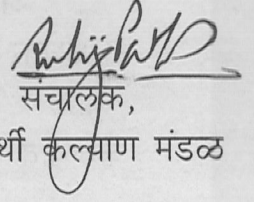 संचालक,
र्थी कल्याण मंडळ